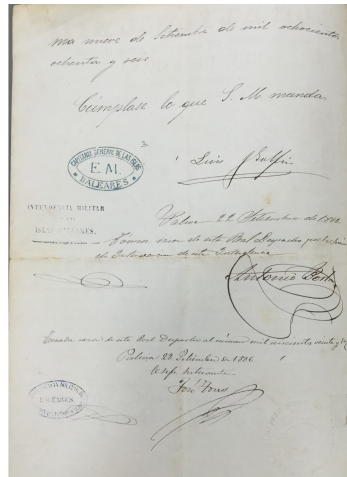 ma nueve de Setiembre de mil ochocientos
ochenta y seis
Cúmplase lo que S. M. manda
CAPITANIA GENERAL DE LAS ISLAS
E. M.
BALEARES
Luis
INTENDENCIA MILITAR
DE LAS
ISLAS BALEARES.
Palma 22 Setiembre de 1886
Tómese razon de este Real Despacho por la
de Intervencion de esta Intendencia
Antonio
Tomada razon de este Real Despacho al número mil
Palma 23 Setiembre de 1886
El Jefe Interventor
José
BALEARES